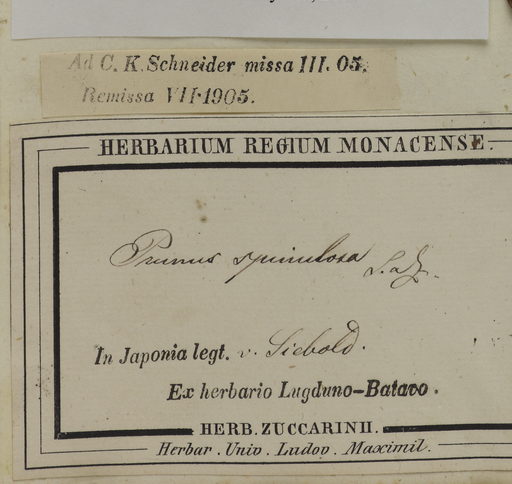 Ad C. K. Schneider missa III. 05.
Remissa VII·1905.
HERBARIUM REGIUM MONACENSE.
Prunus spinulosa S. & Z.
In Japonia legt. v. Siebold.
Ex herbario Lugduno-Batavo.
HERB. ZUCCARINII.
Herbar. Univ. Ludov. Maximil.